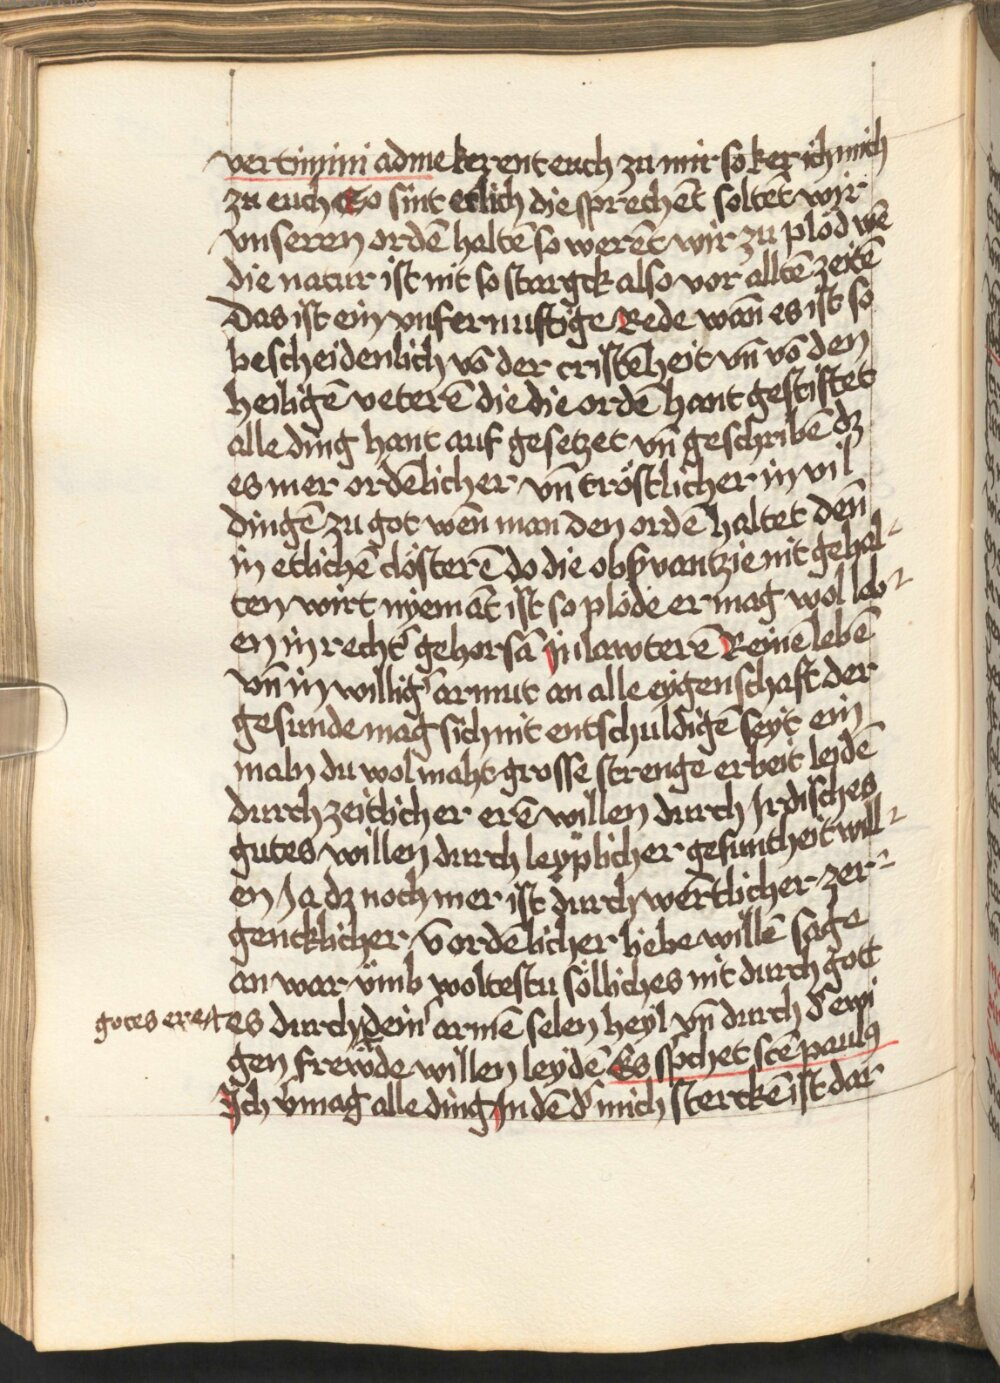 vertimini ad me kerent euch zu mir so ker ich mich
zu euch So sint etlich die sprechēt soltēt wir
vnseren ordē haltē so werēt wir zu plöd wē
die natur ist nit so stargck also vor alltē zeitē
Das ist ein vnfernuftige Rede wañ es ist so
bescheidenlich vō der cristēheit vñ vō den
heiligē veterē die die ordē hant gestiftet
alle ding hant auf gesetzet vñ geschribē dz
es mer ordēlicher vñ tröstlicher in vil
dingē zu got wen man den ordē haltet den̄
in etlichē clösterē do die obs̾vantzie nit gehal-
ten wirt nyemāt ist so plöde er mag wol leb-
en in recht̾ gehorsā In lawterē Reinē lebē
vñ in willig̾ armut an alle eygenschaft der
gesunde mag sich nit entschuldigē seyt ein
maln du wol maht grosse strenge erbeit leidē
durch zeitlicher erē willen durch Irdisches
gutes willen durch leyplicher gesuntheit will-
en Ja dz noch mer ist durch wertlicher zer-
gencklicher v̄ordēlicher liebe willē sage
an war vmb woltestu sölliches nit durch gott
gotes ere
es durch dein̾ armē selen heyl vñ durch d̾ ewi
gen frewde willen leydē Es sp̄chet sctē paulus
Ich v̾mag alle ding In dē d̾ mich sterckē ist dar